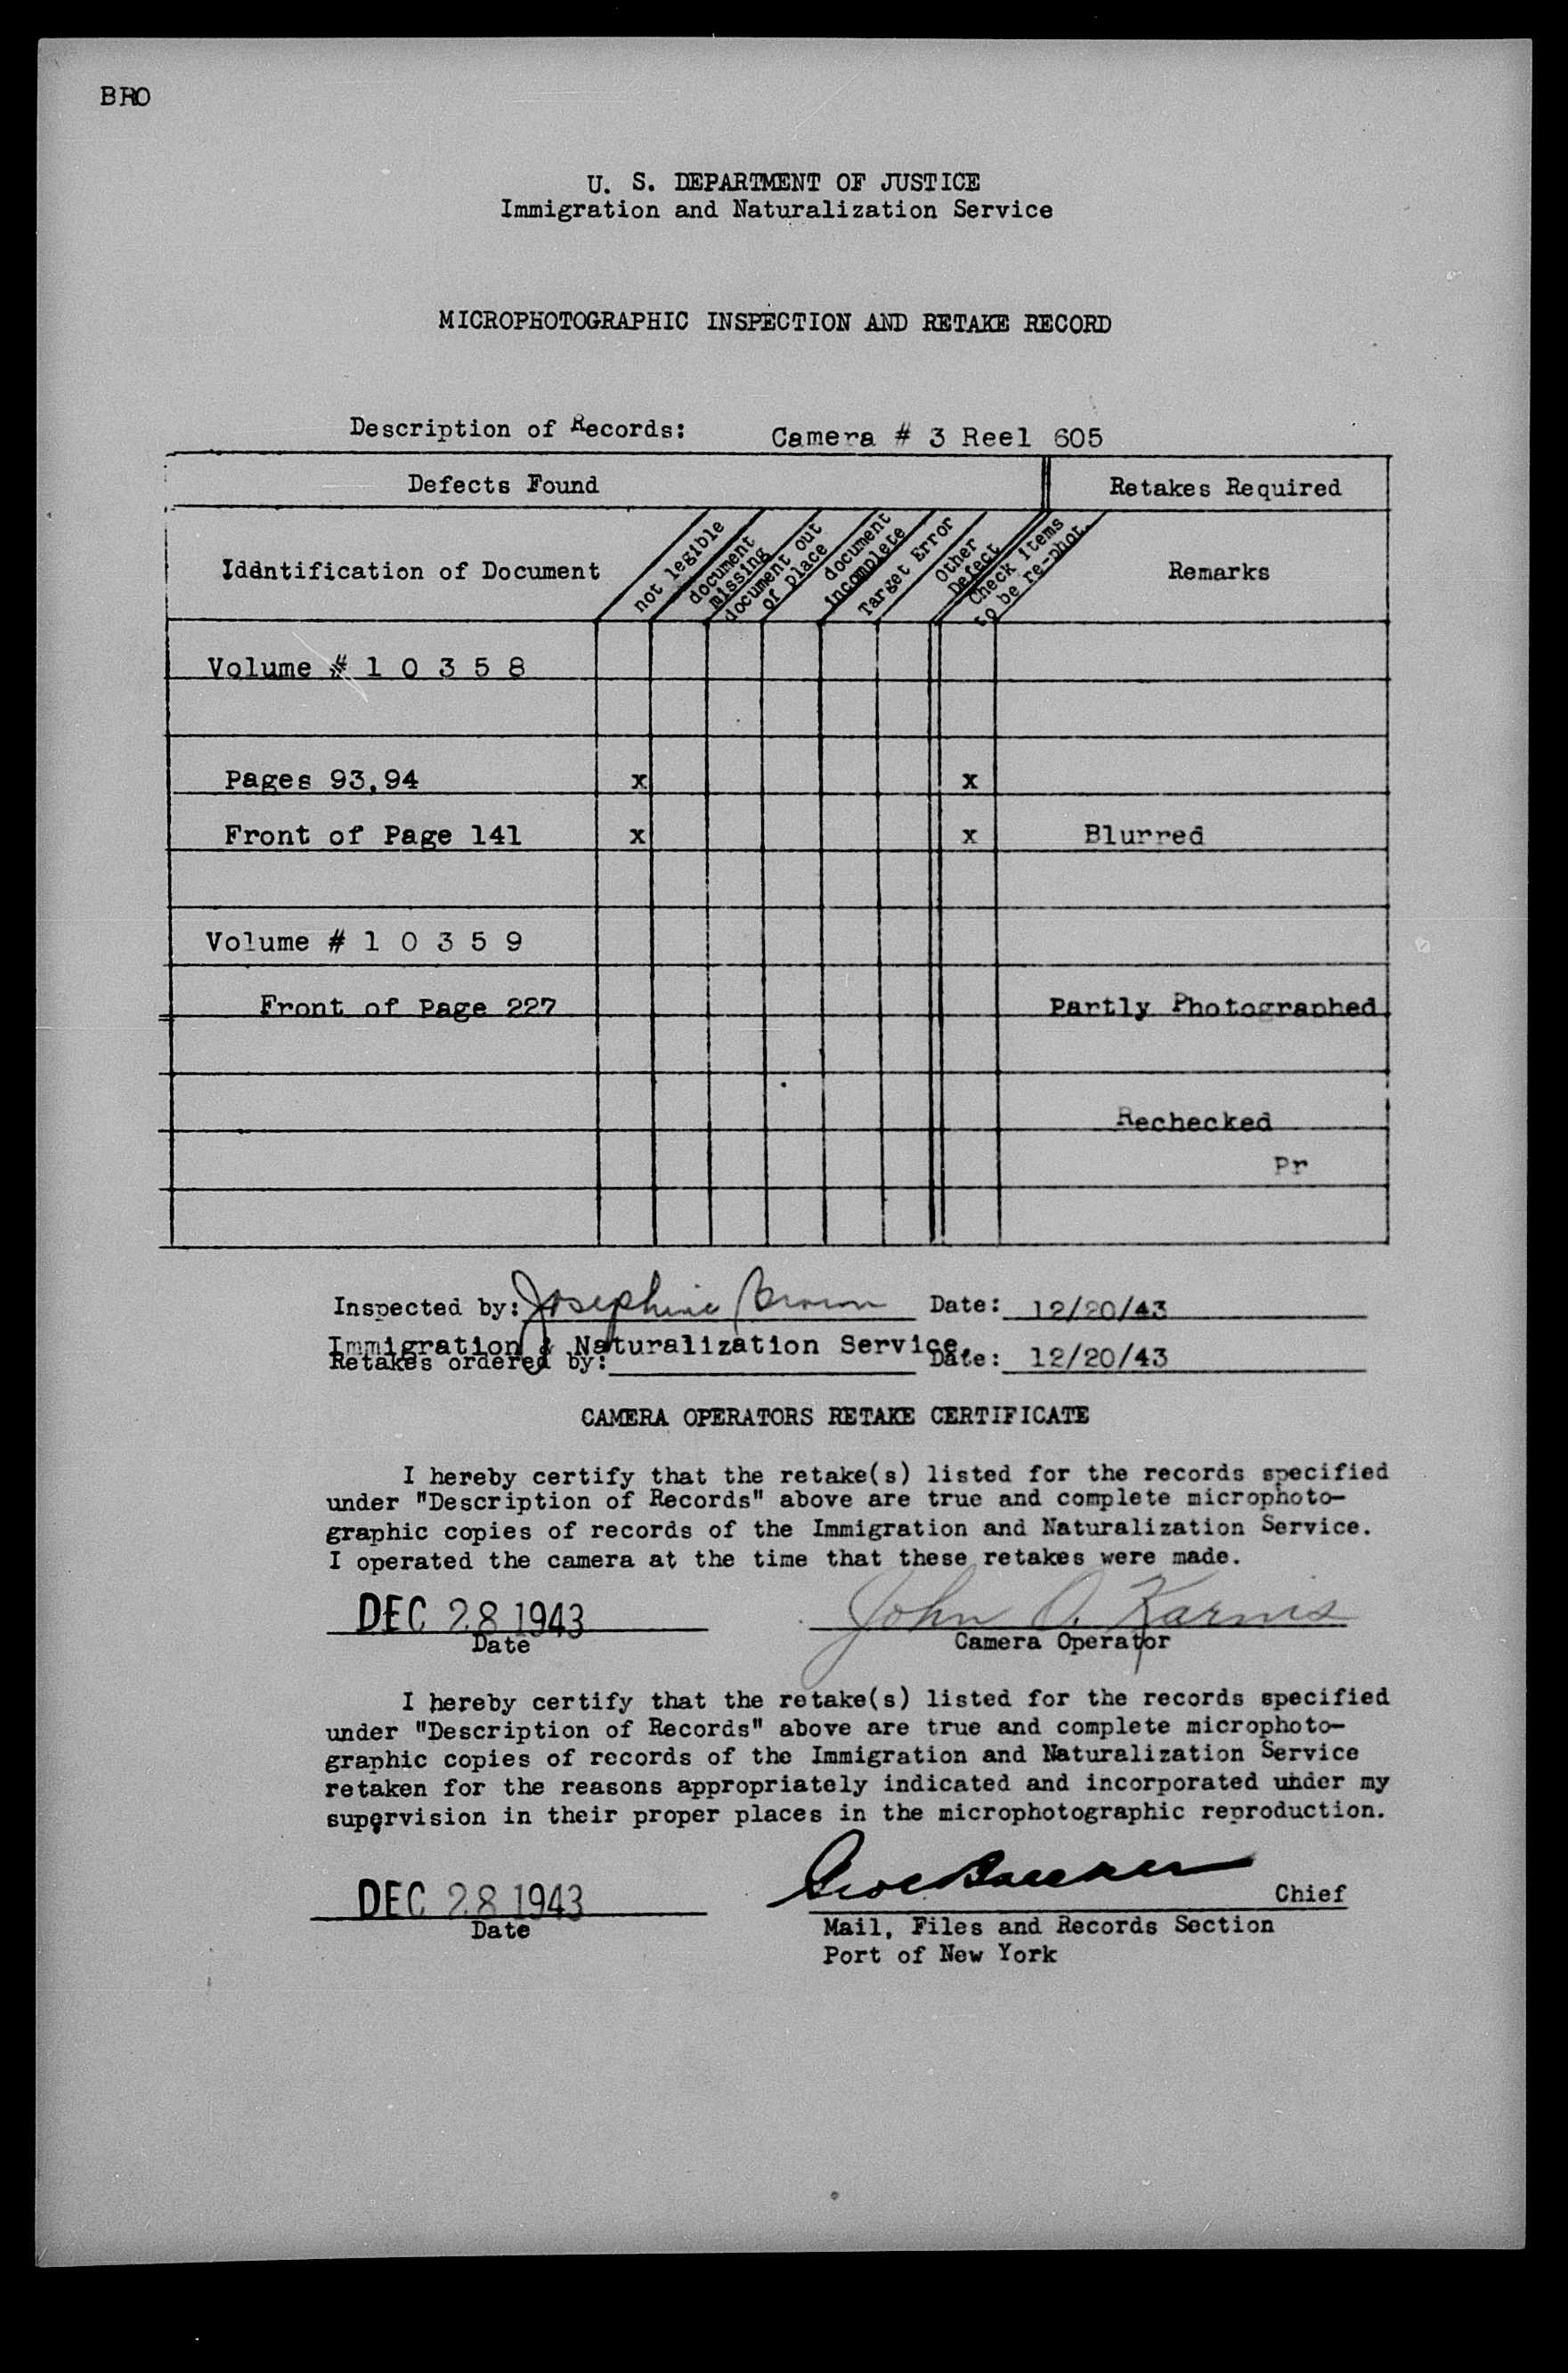 BRO
U. S. DEPARTMENT OF JUSTICE
Immigration and Naturalization Service
MICROPHOTOGRAPHIC INSPECTION AND RETAKE RECORD
Description of Records: Camera # 3 Reel 605
Defects Found Retakes Required
Idantification of Document not legible document missing document out of place document incomplete Target Error Other Defect Check items to be re-phot. Remarks
Volume # 1 0 3 5 8
Pages 93,94 x x
Front of Page 141 x x Blurred
Volume # 1 0 3 5 9
Front of Page 227 Partly Photographed
Rechecked
Pr
Inspected by: Josephine Brown Date: 12/20/43
Immigration & Naturalization Service.
Retakes ordered by: Date: 12/20/43
CAMERA OPERATORS RETAKE CERTIFICATE
I hereby certify that the retake(s) listed for the records specified
under "Description of Records" above are true and complete microphoto-
graphic copies of records of the Immigration and Naturalization Service.
I operated the camera at the time that these retakes were made.
DEC 28 1943 John A. Karnis
Date Camera Operator
I hereby certify that the retake(s) listed for the records specified
under "Description of Records" above are true and complete microphoto-
graphic copies of records of the Immigration and Naturalization Service
retaken for the reasons appropriately indicated and incorporated under my
supervision in their proper places in the microphotographic reproduction.
DEC 28 1943 Chief
Date Mail, Files and Records Section
Port of New York